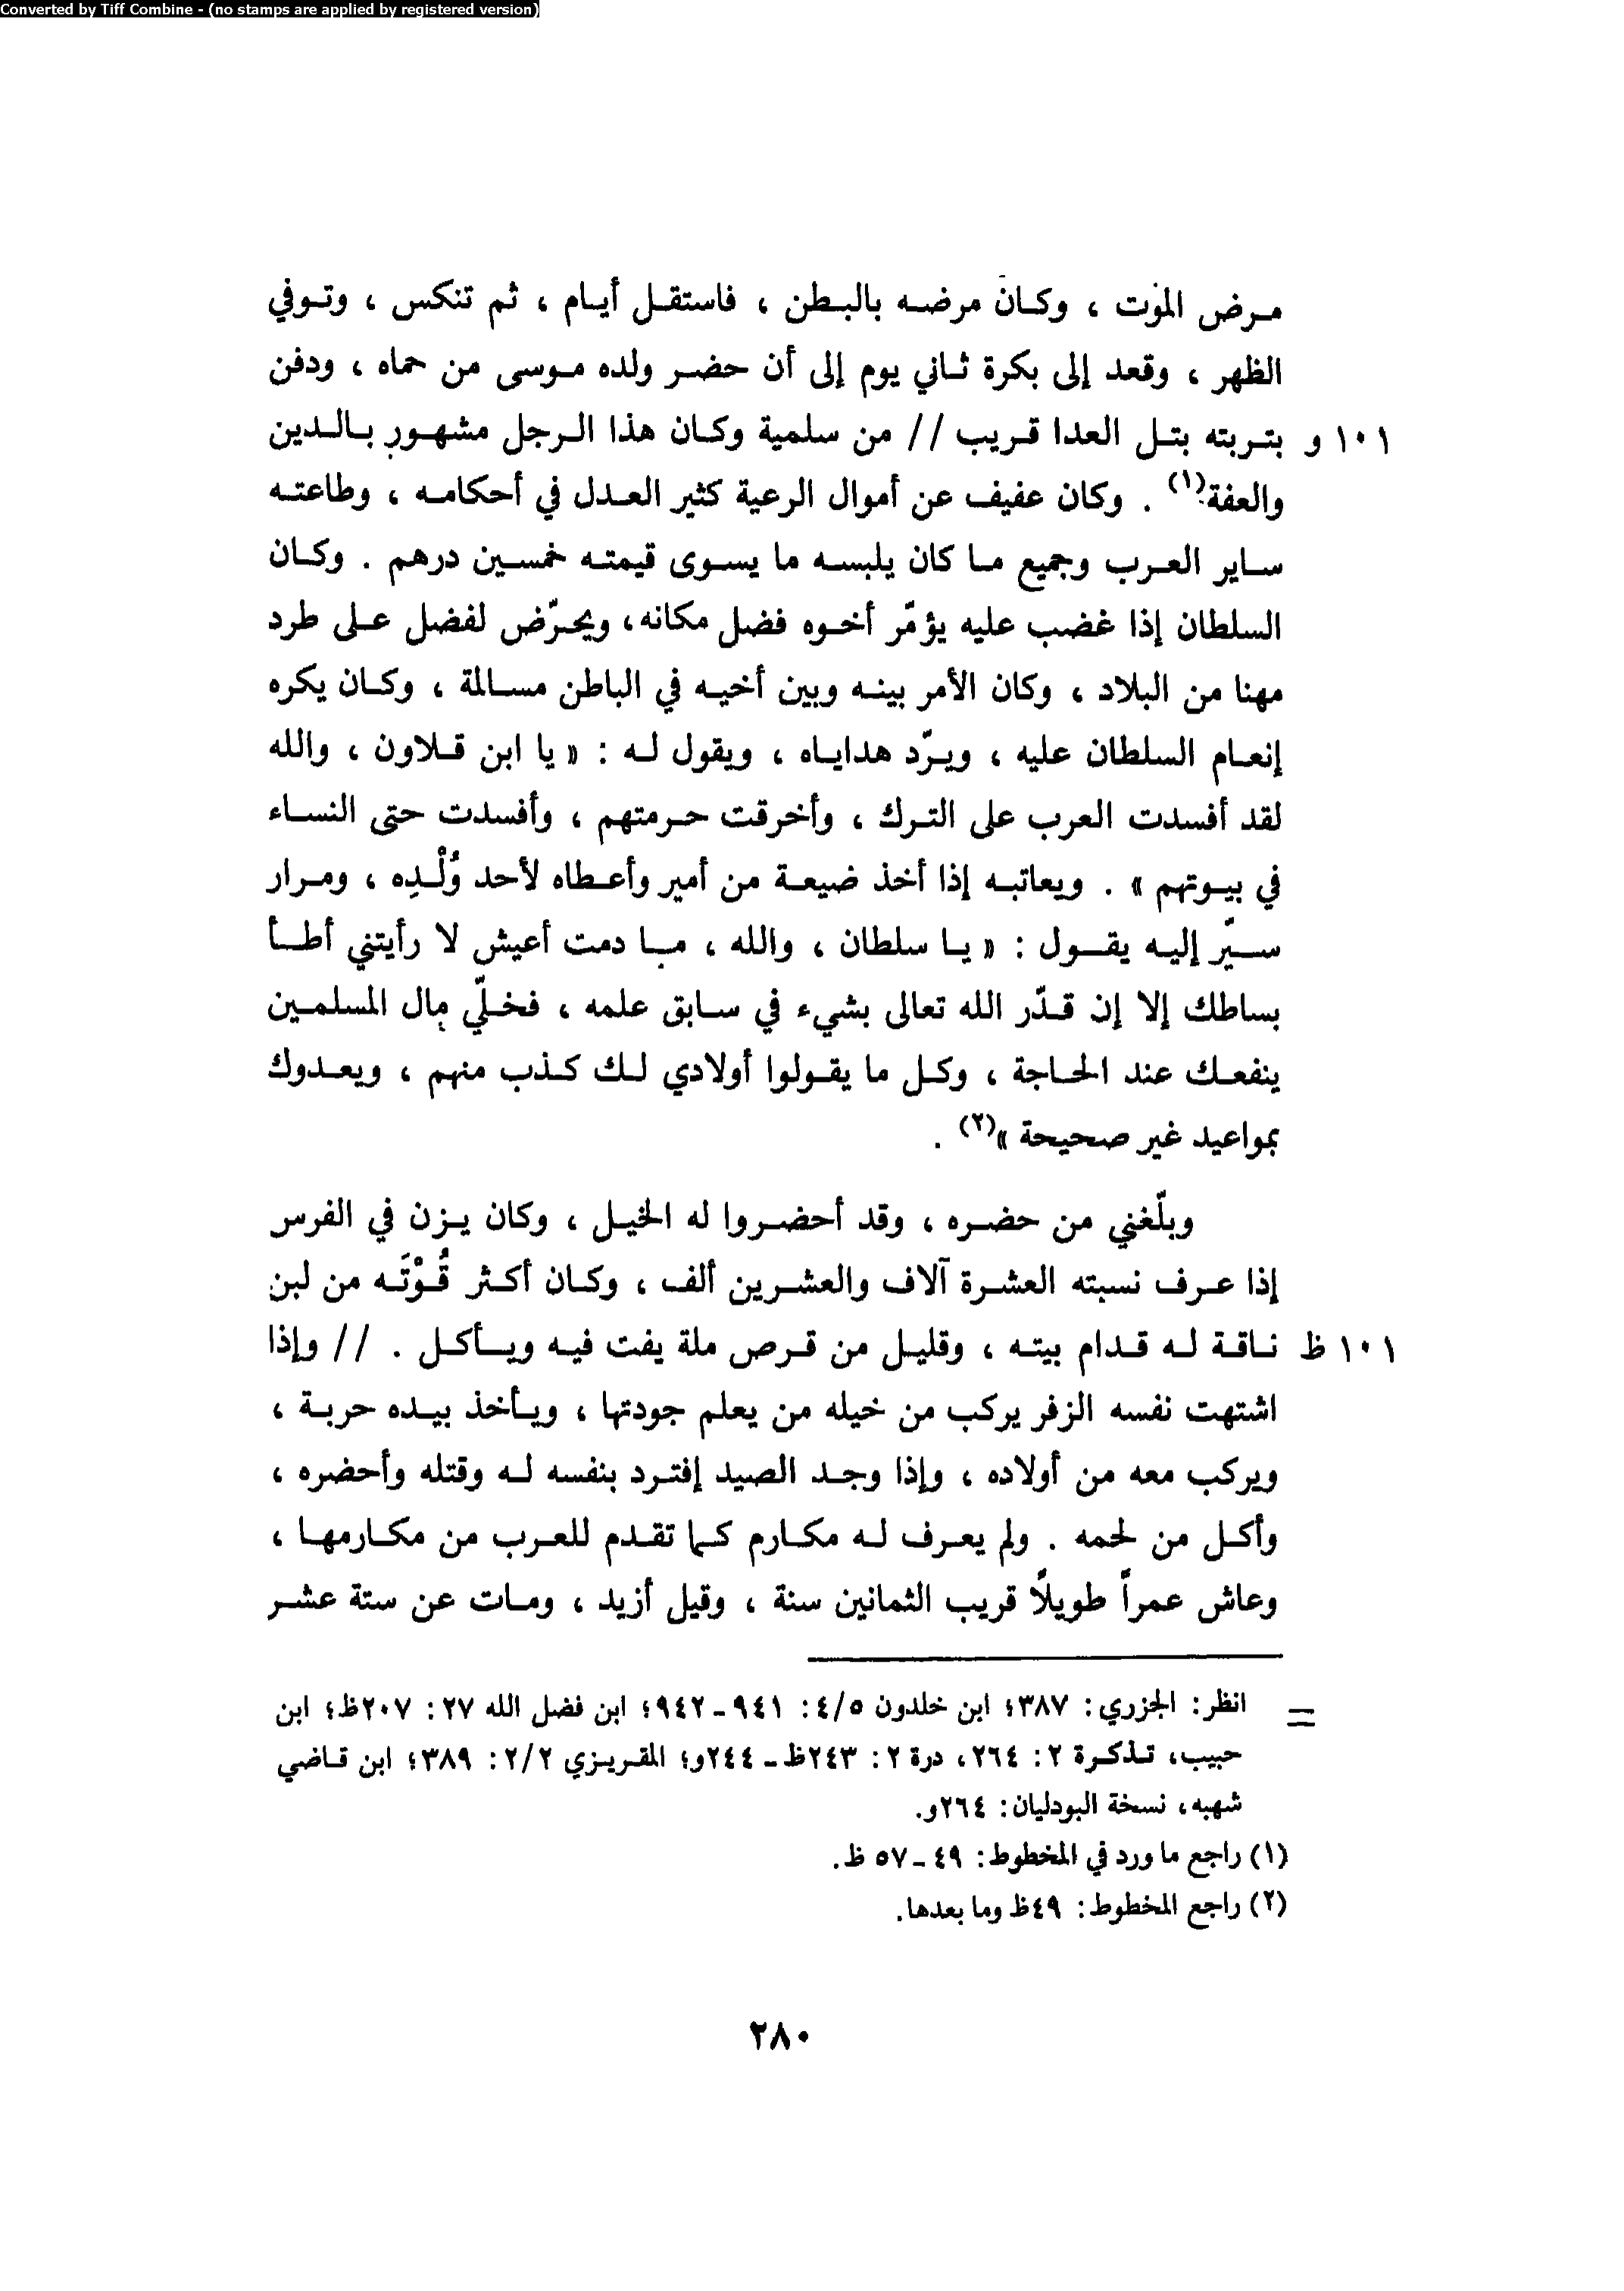 Converted by Tiff Combine - (no stamps are applied by registered version)
مرض الموت ، وكان مرضه بالبطن ، فاستقل أيام ، ثم تنكس ، وتوفي
الظهر ، وقعد إلى بكرة ثاني يوم إلى أن حضر ولده موسى من حماه ، ودفن
١٠١ و بتربته بتل العدا قريب // من سلمية وكان هذا الرجل مشهور بالدين
والعفة(١) . وكان عفيف عن أموال الرعية كثير العدل في أحكامه ، وطاعته
ساير العرب وجميع ما كان يلبسه ما يسوى قيمته خمسين درهم . وكان
السلطان إذا غضب عليه يؤمّر أخوه فضل مكانه، ويحرّض لفضل على طرد
مهنا من البلاد ، وكان الأمر بينه وبين أخيه في الباطن مسالمة ، وكان يكره
إنعام السلطان عليه ، ويردّ هداياه ، ويقول له : « يا ابن قلاون ، والله
لقد أفسدت العرب على الترك ، وأخرقت حرمتهم ، وأفسدت حتى النساء
في بيوتهم » . ويعاتبه إذا أخذ ضيعة من أمير وأعطاه لأحد وُلْدِه ، ومرار
سيّر إليه يقول : « يا سلطان ، والله ، ما دمت أعيش لا رأيتني أطأ
بساطك إلا إن قدّر الله تعالى بشيء في سابق علمه ، فخلّي مال المسلمين
ينفعك عند الحاجة ، وكل ما يقولوا أولادي لك كذب منهم ، ويعدوك
بمواعيد غير صحيحة »(٢) .
وبلّغني من حضره ، وقد أحضروا له الخيل ، وكان يزن في الفرس
إذا عرف نسبته العشرة آلاف والعشرين ألف ، وكان أكثر قُوْتَه من لبن
١٠١ ظ ناقة له قدام بيته ، وقليل من قرص ملة يفت فيه ويأكل . // وإذا
اشتهت نفسه الزفر يركب من خيله من يعلم جودتها ، ويأخذ بيده حربة ،
ويركب معه من أولاده ، وإذا وجد الصيد إفترد بنفسه له وقتله وأحضره ،
وأكل من لحمه . ولم يعرف له مكارم كما تقدم للعرب من مكارمها ،
وعاش عمراً طويلاً قريب الثمانين سنة ، وقيل أزيد ، ومات عن ستة عشر
= انظر: الجزري: ٣٨٧؛ ابن خلدون ٤/٥: ٩٤١-٩٤٢؛ ابن فضل الله ٢٧: ٢٠٧ظ؛ ابن
حبيب، تذكرة ٢: ٢٦٤، درة ٢: ٢٤٣ظ-٢٤٤و؛ المقريزي ٢/٢: ٣٨٩؛ ابن قاضي
شهبه، نسخة البودليان: ٢٦٤و.
(١) راجع ما ورد في المخطوط: ٤٩-٥٧ ظ.
(٢) راجع المخطوط: ٤٩ظ وما بعدها.
٢٨٠